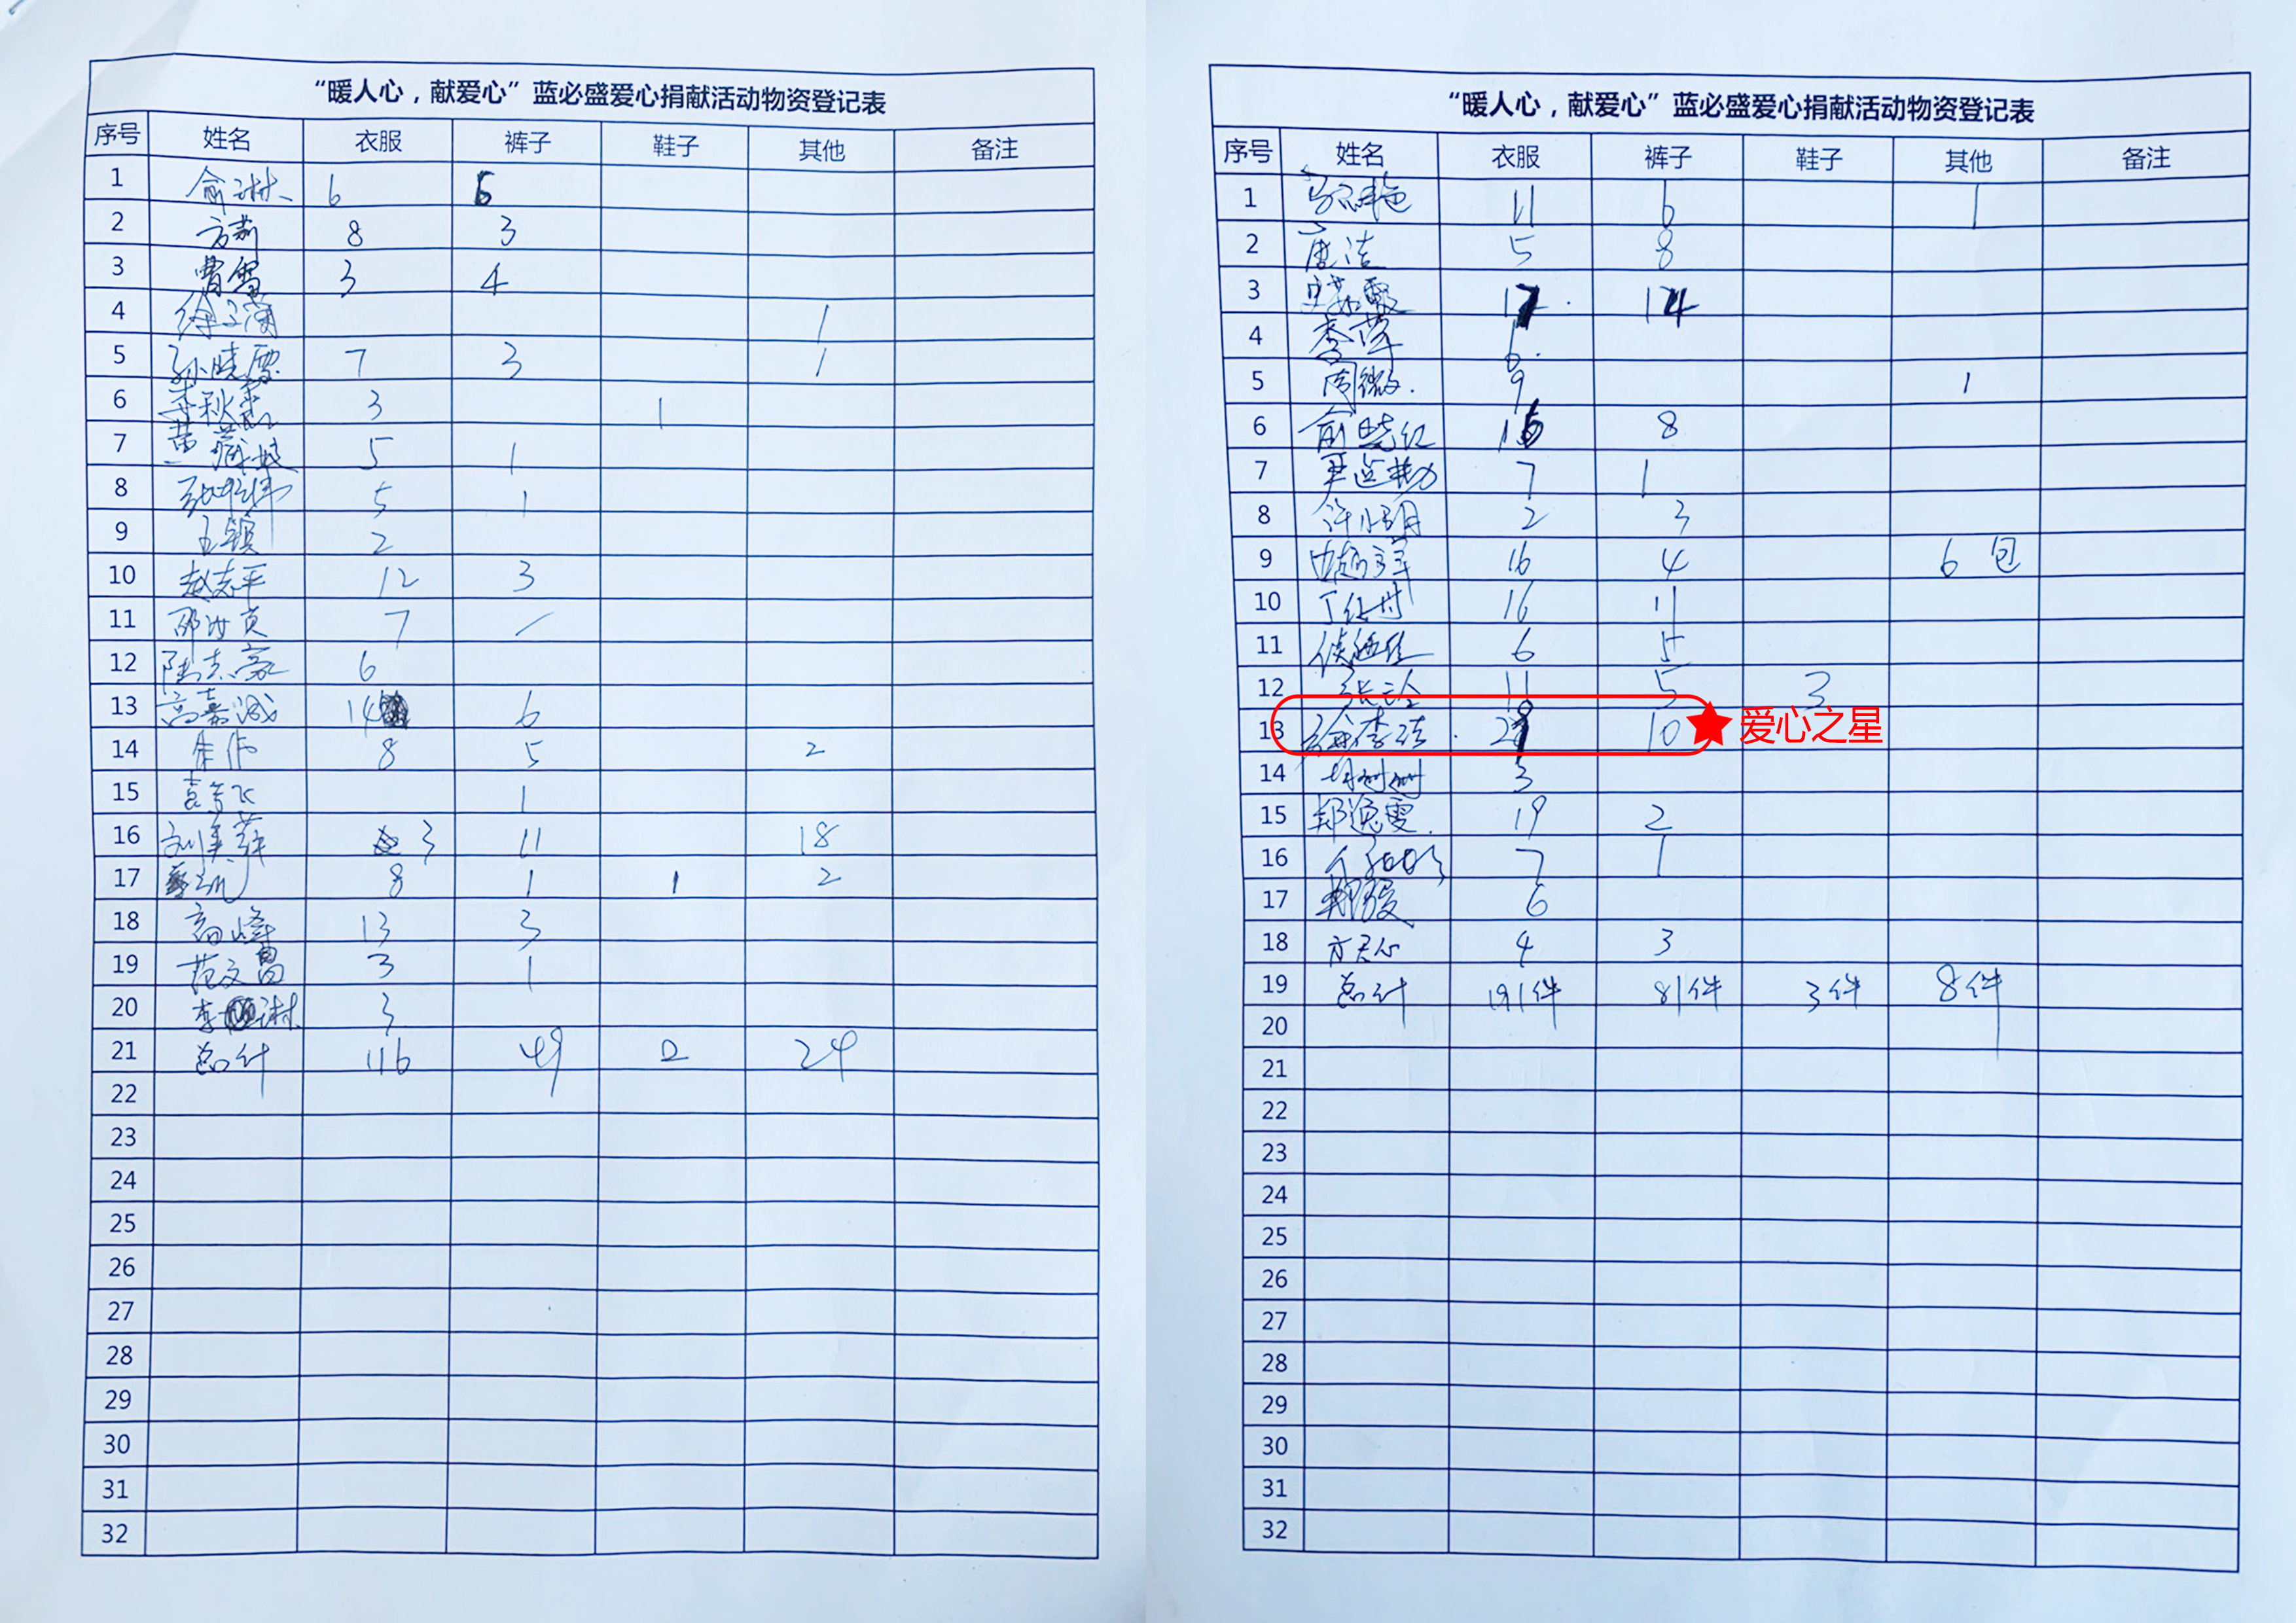 “暖人心，献爱心”蓝必盛爱心捐献活动物资登记表
序号 姓名 衣服 裤子 鞋子 其他 备注
1 俞琳 6 6
2 方莉 8 3
3 曹雪 3 4
4 1
5 孙晓霞 7 3 1
6 3 1
7 5 1
8 5 1
9 王镇 2
10 赵志平 12 3
11 邵汝贞 7 /
12 陆志豪 6
13 高嘉诚 14 6
14 朱伟 8 5 2
15 袁芳飞 1
16 刘美萍 3 11 18
17 8 1 1 2
18 高峰 13 3
19 范文昌 3 1
20 李琳 3
21 总计 116 49 2 24
22
23
24
25
26
27
28
29
30
31
32
“暖人心，献爱心”蓝必盛爱心捐献活动物资登记表
序号 姓名 衣服 裤子 鞋子 其他 备注
1 11 6 1
2 唐洁 5 8
3 14
4 李萍 6
5 周微 9 1
6 俞晓红 8
7 7 1
8 2 3
9 16 4 6包
10 16 11
11 6 5
12 11 5 3
13 10 爱心之星
14 3
15 郑逸雯 19 2
16 7 1
17 6
18 方君心 4 3
19 总计 191件 81件 3件 8件
20
21
22
23
24
25
26
27
28
29
30
31
32